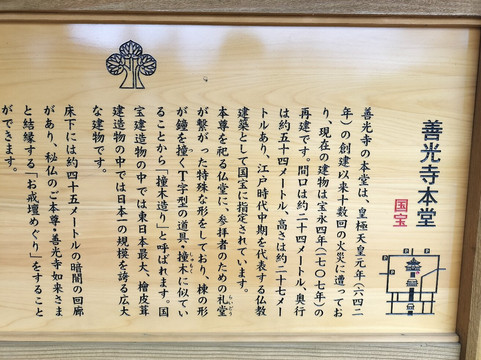 善光寺本堂
国宝
善光寺の本堂は、皇極天皇元年(六四二
年)の創建以来十数回の火災に遭ってお
り、現在の建物は宝永四年(一七〇七年)の
再建です。間口は約二十四メートル、奥行
は約五十四メートル、高さは約二十七メー
トルあり、江戸時代中期を代表する仏教
建築として国宝に指定されています。
本尊を祀る仏堂に、参拝者のための礼堂
が繋がった特殊な形をしており、棟の形
が鐘を撞くT字型の道具・撞木に似てい
ることから「撞木造り」と呼ばれます。国
宝建造物の中では東日本最大、檜皮葺
建造物の中では日本一の規模を誇る広大
な建物です。
床下には約四十五メートルの暗闇の回廊
があり、秘仏のご本尊・善光寺如来さま
と結縁する「お戒壇めぐり」をすること
ができます。